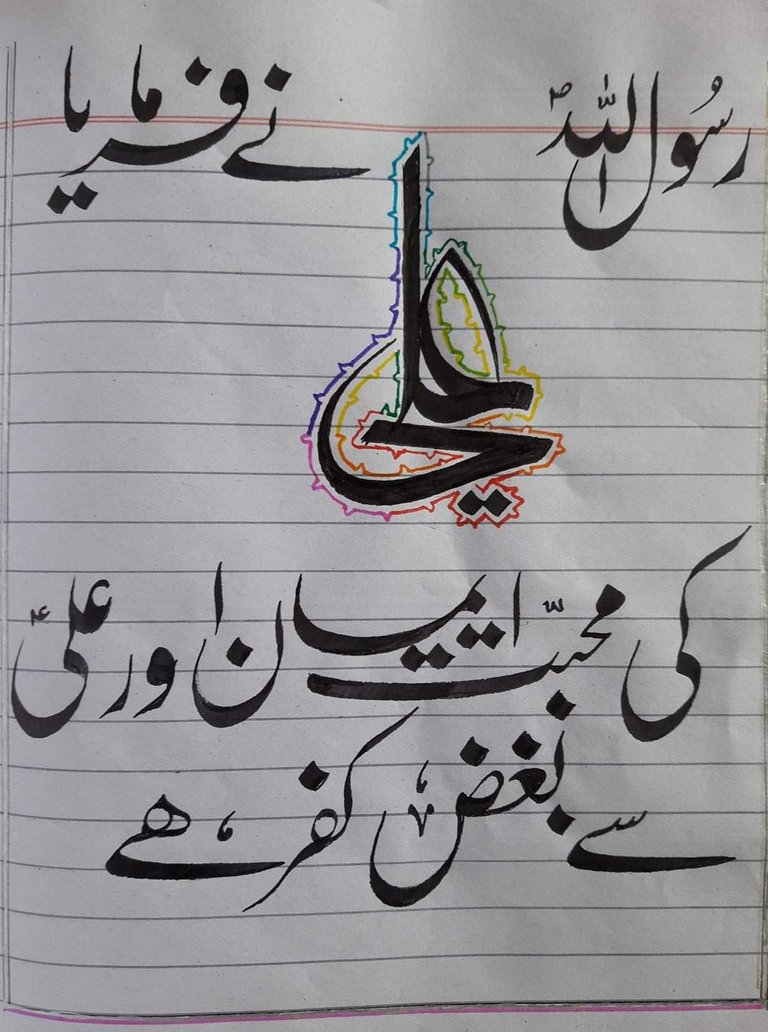 رسُول اللہؐ نے فرمایا
علی
کی محبّت ایمان اور علیؑ
سے بُغض کفر ھے